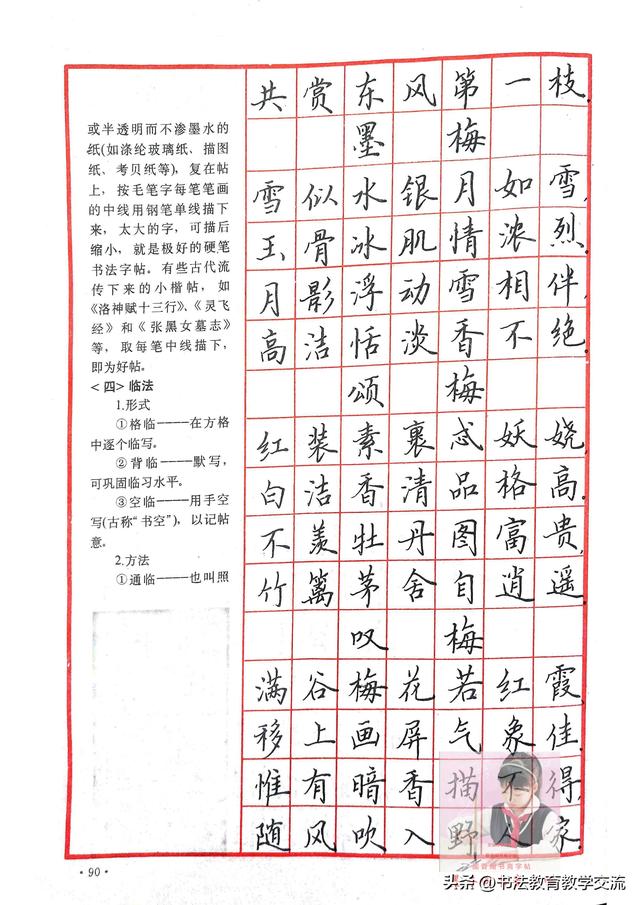 或半透明而不渗墨水的
纸(如涤纶玻璃纸、描图
纸、考贝纸等)，复在帖
上，按毛笔字每笔笔画
的中线用钢笔单线描下
来，太大的字，可描后
缩小，就是极好的硬笔
书法字帖。有些古代流
传下来的小楷帖，如
《洛神赋十三行》、《灵飞
经》和《张黑女墓志》
等，取每笔中线描下，
即为好帖。
<四>临法
1.形式
①格临————在方格
中逐个临写。
②背临————默写，
可巩固临习水平。
③空临————用手空
写(古称“书空”)，以记帖
意。
2.方法
①通临————也叫照
共赏东风第一枝.
墨梅
雪似水银月如雪.
玉骨冰肌情浓烈.
月影浮动雪相伴.
高洁恬淡香不绝.
颂梅
红装素裹忒妖娆.
白洁香清品格高.
不羡牡丹图富贵.
竹篱茅舍自逍遥.
叹梅
满谷梅花若红霞.
移上画屏气象佳.
惟有暗香描不得.
随风吹入野人家.
·90·
头条@书法教育教学交流